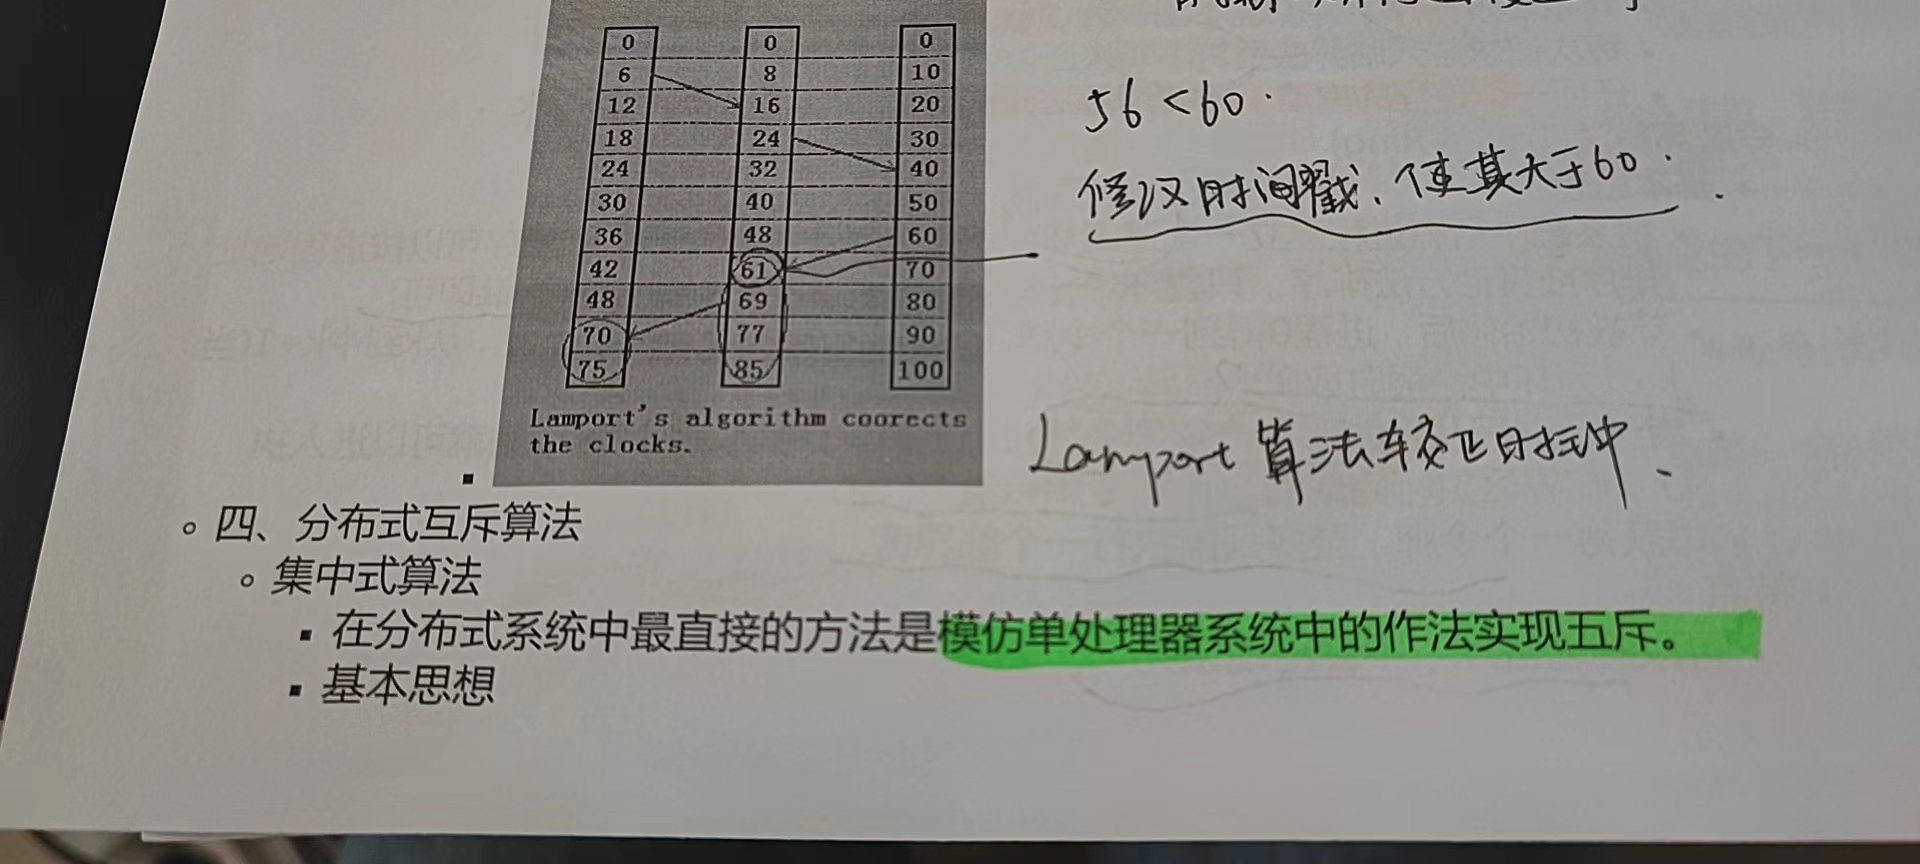 0 0 0
6 8 10
12 16 20
18 24 30
24 32 40
30 40 50
36 48 60
42 61 70
48 69 80
70 77 90
75 85 100
Lamport's algorithm coorects
the clocks.
56<60.
修改时间戳、使其大于60.
Lamport 算法校正时钟、
四、分布式互斥算法
集中式算法
在分布式系统中最直接的方法是模仿单处理器系统中的作法实现五斥。
基本思想